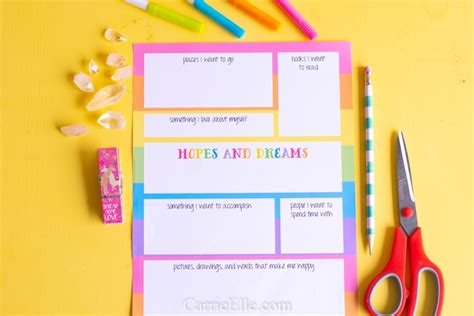 places I want to go
books I want
to read
something I love about myself
HOPES AND DREAMS
something I want to accomplish
people I want to
spend time with
pictures, drawings, and words that make me happy
CarrieElle.com